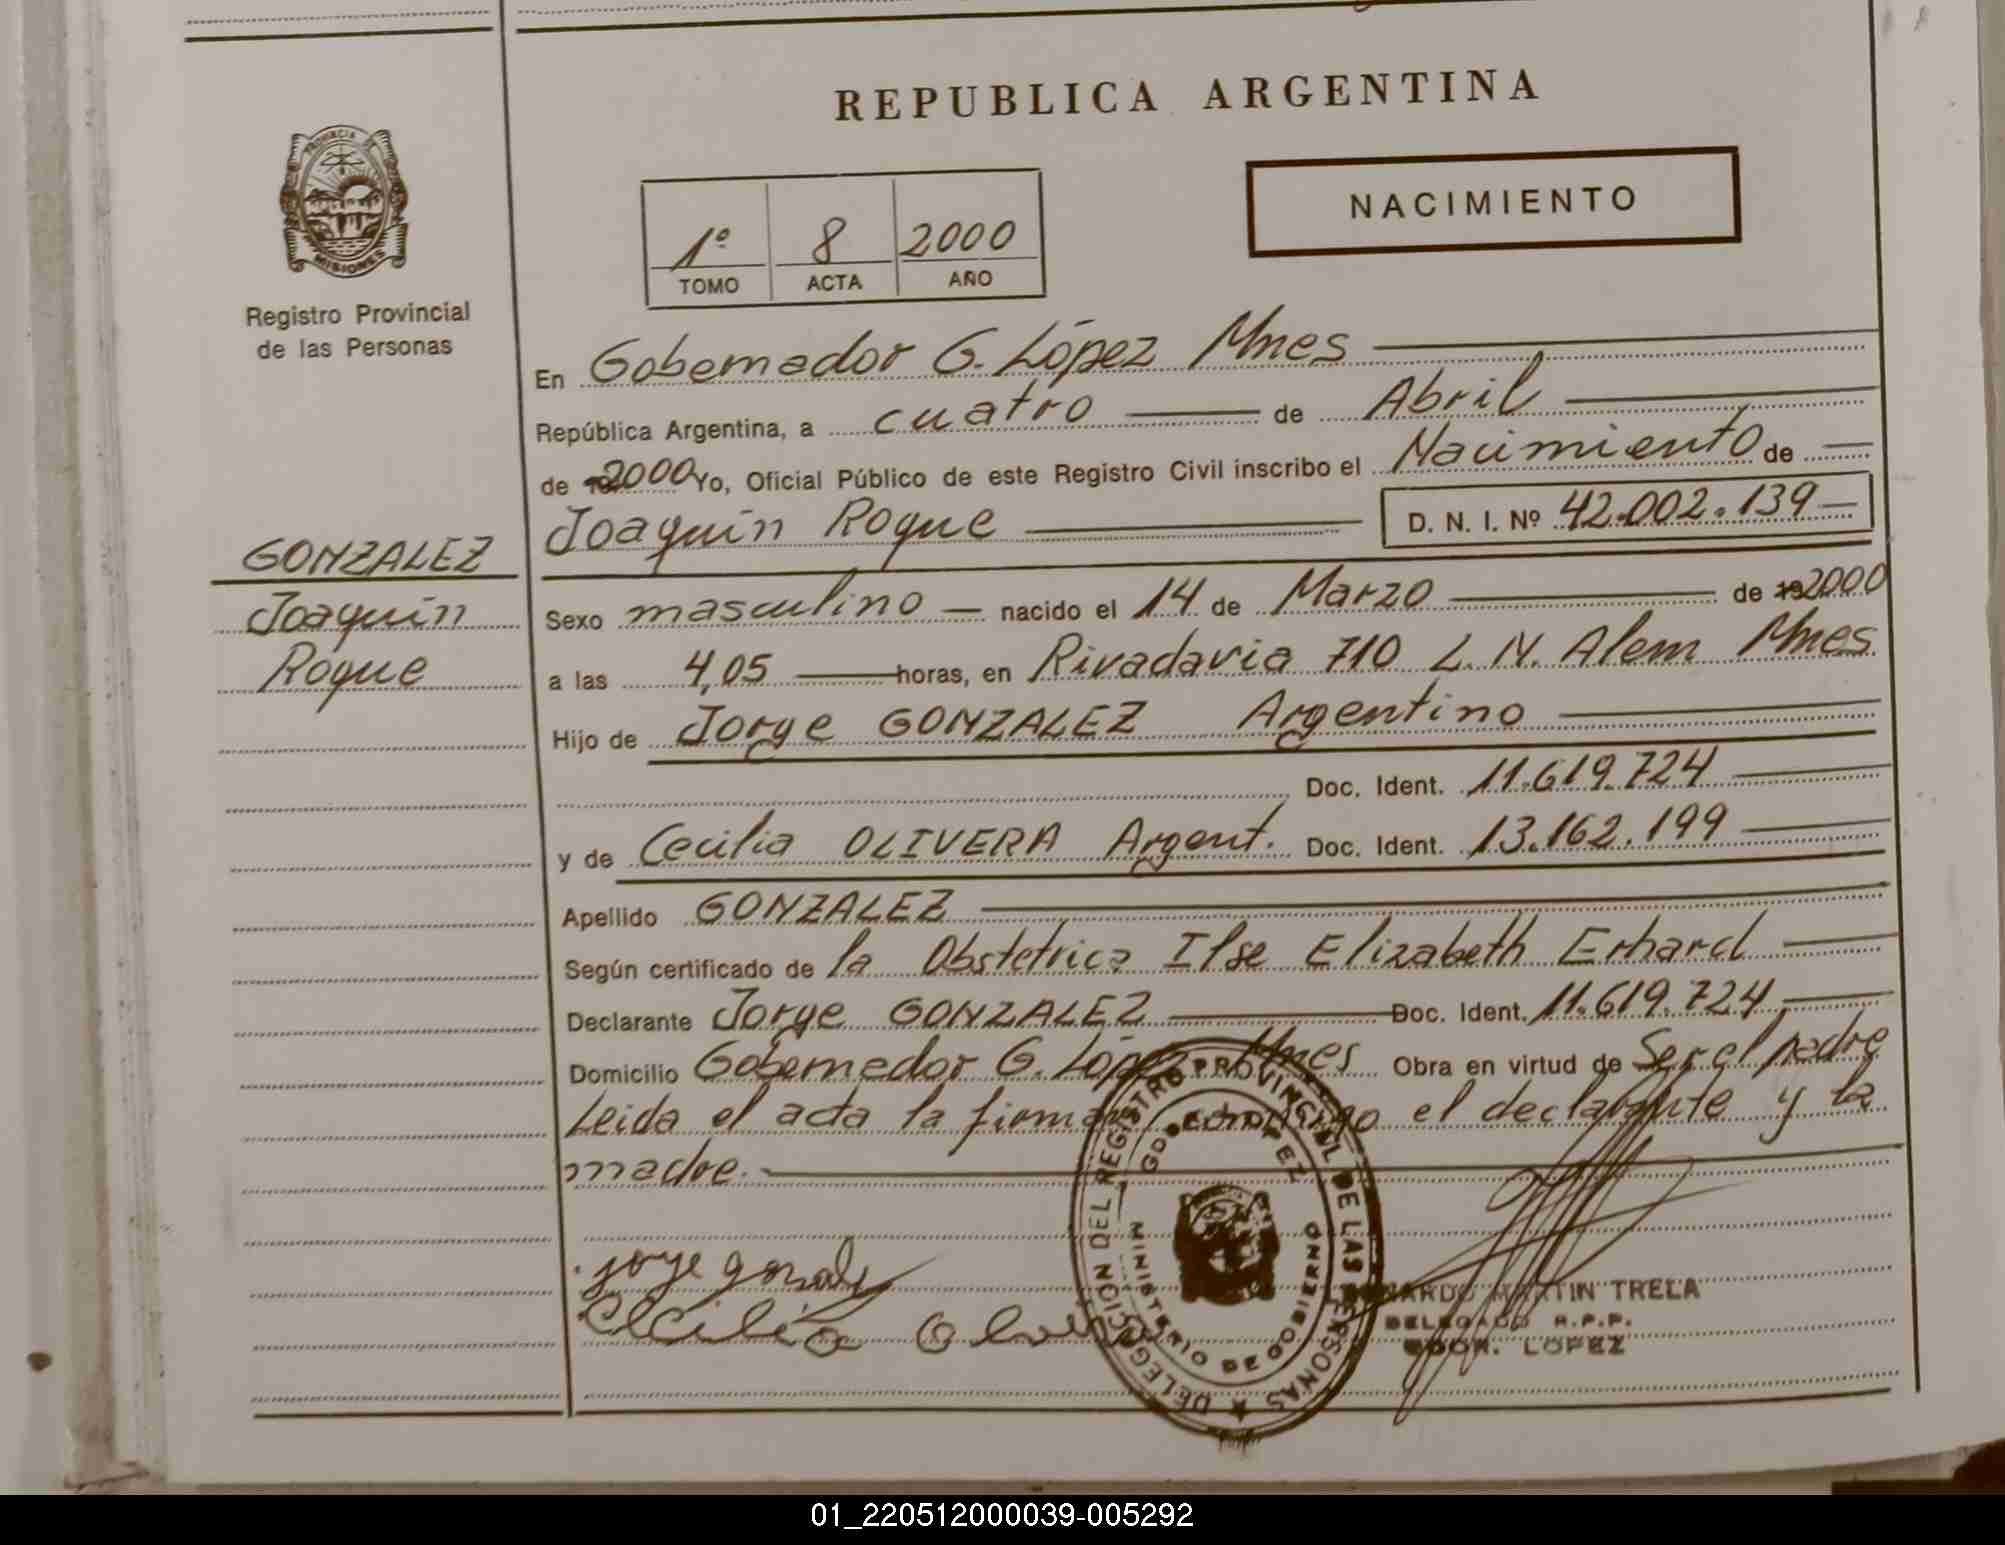 REPUBLICA ARGENTINA
PROVINCIA DE MISIONES
Registro Provincial
de las Personas
1º 8 2000
TOMO ACTA AÑO
NACIMIENTO
En Gobernador G. López Mnes
República Argentina, a cuatro de Abril
de 2000 Yo, Oficial Público de este Registro Civil inscribo el Nacimiento de
Joaquín Roque D. N. I. Nº 42.002.139
GONZALEZ
Joaquín
Roque
Sexo masculino nacido el 14 de Marzo de 2000
a las 4,05 horas, en Rivadavia 710 L. N. Alem Mnes
Hijo de Jorge GONZALEZ Argentino
Doc. Ident. 11.619.724
y de Cecilia OLIVERA Argent. Doc. Ident. 13.162.199
Apellido GONZALEZ
Según certificado de la Obstetrica Ilse Elizabeth Erhard
Declarante Jorge GONZALEZ Doc. Ident. 11.619.724
Domicilio Gobernador G. López Mnes Obra en virtud de Ser el padre
Leida el acta la firman conmigo el declarante y la
madre.
jorge gonzale
Cecilia Olivera
DELEGACION DEL REGISTRO PROVINCIAL DE LAS PERSONAS
GDOR. LOPEZ
MINISTERIO DE GOBIERNO
MARTIN TRELA
DELEGADO R.P.P.
GDOR. LOPEZ
01_220512000039-005292